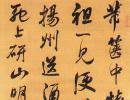 帶篋中
祖一見便
揚州送酒
上研山明